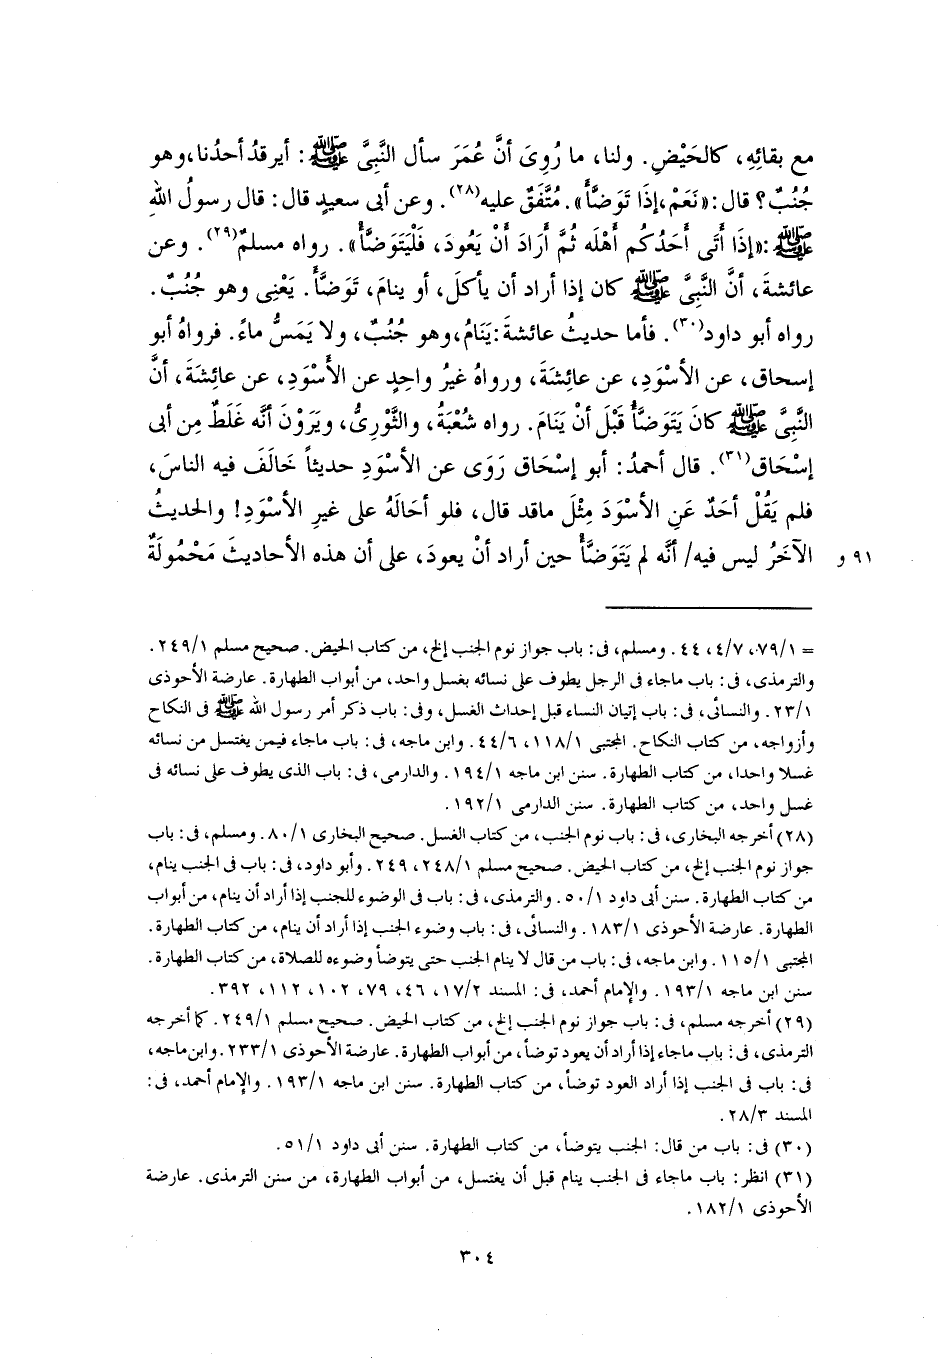 مع بقائِهِ، كالحَيْضِ. ولنا، ما رُوِىَ أنَّ عُمَرَ سأل النَّبِىَّ ﷺ: أيرقدُ أحدُنا، وهو
جُنُبٌ؟ قال: «نَعَمْ، إذَا تَوَضَّأَ». مُتَّفَقٌ عليه(٢٨). وعن أبى سعيدٍ قال: قال رسولُ اللهِ
ﷺ: «إذَا أَتَى أَحَدُكُم أهْلَه ثُمَّ أرَادَ أنْ يَعُودَ، فَلْيَتَوَضَّأْ». رواه مسلمٌ(٢٩). وعن
عائشةَ، أنَّ النَّبِىَّ ﷺ كان إذا أراد أن يأكلَ، أو ينامَ، تَوَضَّأَ. يَعْنِى وهو جُنُبٌ.
رواه أبو داود(٣٠). فأما حديثُ عائشةَ: يَنَامُ، وهو جُنُبٌ، ولا يَمَسُّ ماءً. فرواهُ أبو
إسحاق، عن الأسْوَدِ، عن عائِشَةَ، ورواهُ غيرُ واحِدٍ عن الأَسْوَدِ، عن عائِشَةَ، أنَّ
النَّبِىَّ ﷺ كانَ يَتَوَضَّأُ قَبْلَ أنْ يَنَامَ. رواه شُعْبَةُ، والثَّوْرِىُّ، ويَرَوْنَ أنَّه غَلَطٌ مِن أبى
إسْحَاق(٣١). قال أحمدُ: أبو إسْحَاق رَوَى عن الأسْوَدِ حديثاً خَالَفَ فيه الناسَ،
فلم يَقُلْ أحَدٌ عَنِ الأسْوَدَ مِثْلَ ماقد قال، فلو أحَالَهُ على غيرِ الأسْوَدِ! والحديثُ
الآخَرُ ليس فيه/ أنَّه لم يَتَوَضَّأْ حين أراد أنْ يعودَ، على أن هذه الأحاديثَ مَحْمُولَةٌ ٩١ و
= ٧٩/١، ٤/٧، ٤٤. ومسلم، فى: باب جواز نوم الجنب إلخ، من كتاب الحيض. صحيح مسلم ٢٤٩/١.
والترمذى، فى: باب ماجاء فى الرجل يطوف على نسائه بغسل واحد، من أبواب الطهارة. عارضة الأحوذى
٢٣/١. والنسائى، فى: باب إتيان النساء قبل إحداث الغسل، وفى: باب ذكر أمر رسول الله ﷺ فى النكاح
وأزواجه، من كتاب النكاح. المجتبى ١١٨/١، ٤٤/٦. وابن ماجه، فى: باب ماجاء فيمن يغتسل من نسائه
غسلا واحدا، من كتاب الطهارة. سنن ابن ماجه ١٩٤/١. والدارمى، فى: باب الذى يطوف على نسائه فى
غسل واحد، من كتاب الطهارة. سنن الدارمى ١٩٢/١.
(٢٨) أخرجه البخارى، فى: باب نوم الجنب، من كتاب الغسل. صحيح البخارى ٨٠/١. ومسلم، فى: باب
جواز نوم الجنب إلخ، من كتاب الحيض. صحيح مسلم ٢٤٨/١، ٢٤٩. وأبو داود، فى: باب فى الجنب ينام،
من كتاب الطهارة. سنن أبى داود ٥٠/١. والترمذى، فى: باب فى الوضوء للجنب إذا أراد أن ينام، من أبواب
الطهارة. عارضة الأحوذى ١٨٣/١. والنسائى، فى: باب وضوء الجنب إذا أراد أن ينام، من كتاب الطهارة.
المجتبى ١١٥/١. وابن ماجه، فى: باب من قال لا ينام الجنب حتى يتوضأ وضوءه للصلاة، من كتاب الطهارة.
سنن ابن ماجه ١٩٣/١. والإمام أحمد، فى: المسند ١٧/٢، ٤٦، ٧٩، ١٠٢، ١١٢، ٣٩٢.
(٢٩) أخرجه مسلم، فى: باب جواز نوم الجنب إلخ، من كتاب الحيض. صحيح مسلم ٢٤٩/١. كما أخرجه
الترمذى، فى: باب ماجاء إذا أراد أن يعود توضأ، من أبواب الطهارة. عارضة الأحوذى ٢٣٣/١. وابن ماجه،
فى: باب فى الجنب إذا أراد العود توضأ، من كتاب الطهارة. سنن ابن ماجه ١٩٣/١. والإمام أحمد، فى:
المسند ٢٨/٣.
(٣٠) فى: باب من قال: الجنب يتوضأ، من كتاب الطهارة. سنن أبى داود ٥١/١.
(٣١) انظر: باب ماجاء فى الجنب ينام قبل أن يغتسل، من أبواب الطهارة، من سنن الترمذى. عارضة
الأحوذى ١٨٢/١.
٣٠٤